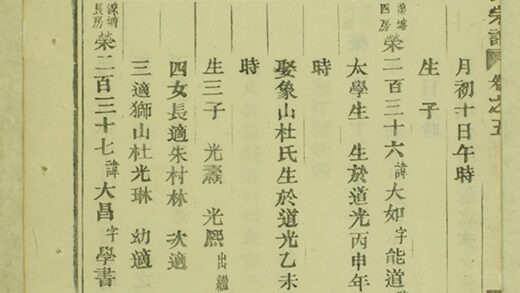 宗譜 卷之五
月初十日午時
生子
溧塘四房 榮二百三十六 諱大如字能道
太學生 生於道光丙申年
時
娶象山杜氏生於道光乙未
時
生三子 光燾 光熙出繼
四女長適朱村林 次適
三適獅山杜光琳 幼適
溧塘長房 榮二百三十七 諱大昌字學書